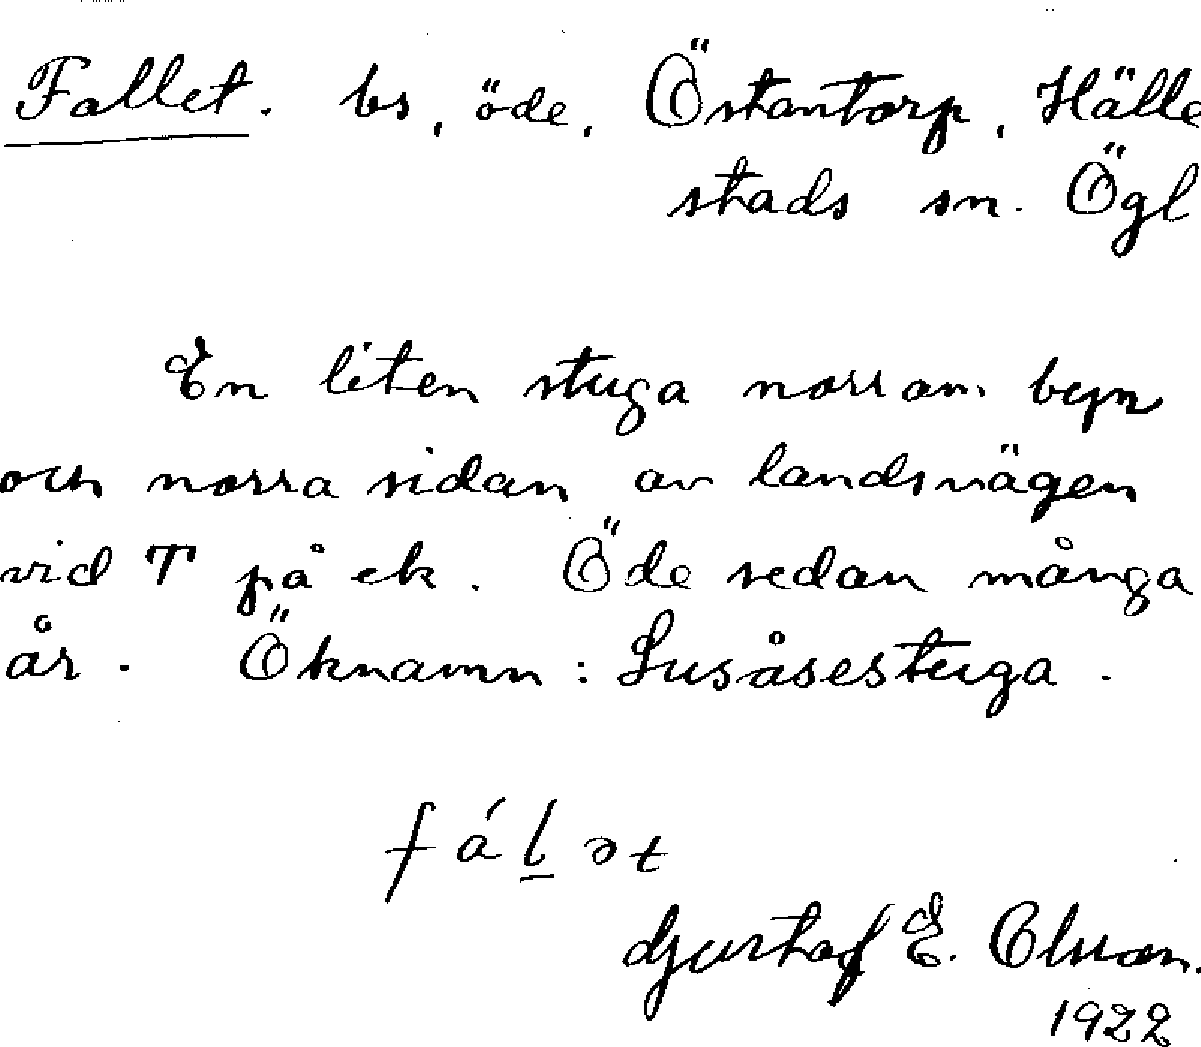 Fallet. bs, öde, Östantorp, Hälle
stads sn. Ögl
En liten stuga norr om byn
och norra sidan av landsvägen
vid T på ek. Öde sedan många
år. Öknamn: Lusåsestuga.
fál̲ət
Gustaf E. Olsson.
1922